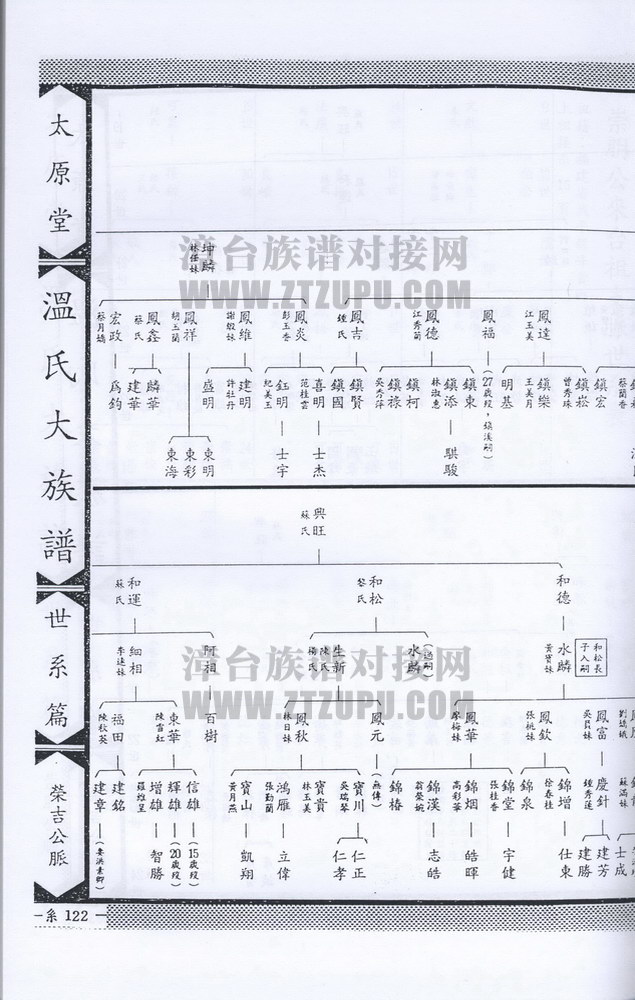 太原堂
溫氏大族譜
世系篇
榮吉公脈
系 122
漳台族谱对接网
WWW.ZTZUPU.COM
坤麟
林任妹
鳳達
江玉美
鳳福
鳳德
江秀蘭
鳳吉
鍾氏
鳳炎
彭玉香
鳳維
謝嬌妹
鳳祥
胡玉蘭
鳳鑫
蔡氏
宏政
蔡月嬌
蔡蘭香
鎮宏
鎮崧
曾秀珠
鎮樂
王美月
明基
(27歲歿,煥溪嗣)
鎮東
鎮添
林淑惠
鎮柯
鎮祿
吳秀萍
鎮賢
鎮國
喜明
范桂雲
鈺明
紀美玉
建明
許牡丹
盛明
麟華
建華
為鈞
騏駿
士杰
士宇
東明
東彩
東海
興旺
蘇氏
和德
和松
黎氏
和運
蘇氏
和松長子入嗣
水麟
黃寶妹
水麟
(過嗣)
生新
陳氏
楊氏
阿相
細相
李連妹
劉嬌娥
鳳富
吳貝妹
鳳欽
張桃妹
鳳華
廖梅妹
鳳元
鳳秋
林日妹
百樹
東華
陳富紅
福田
陳秋英
蘇滿妹
慶針
鍾秀蓮
錦增
徐春桂
錦泉
錦堂
張桂香
錦烟
高彩華
錦漢
翁癸婉
錦椿
(無傳)
寶川
吳瑞琴
寶貴
林玉美
鴻雁
張勤蘭
寶山
黃月燕
信雄
(15歲歿)
輝雄
(20歲歿)
增雄
羅維呈
建銘
建章
(妻洪素卿)
士成
建芳
建勝
仕東
宇健
皓暉
志皓
仁正
仁孝
立偉
凱翔
智勝
漳台族谱对接网
WWW.ZTZUPU.COM